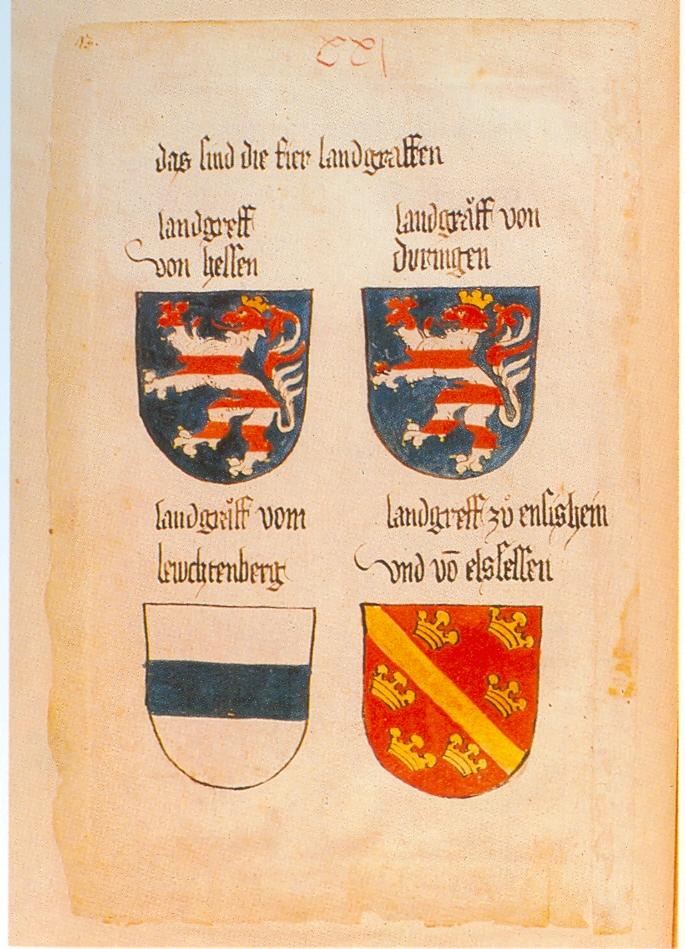 13.
122
das sind die fier landgraffen
landgreff
von hessen
landgraͤff von
duringen
landgraͤff vom
lewchtenberg
landgreff zuͦ ensishein
vnd vō elssessen